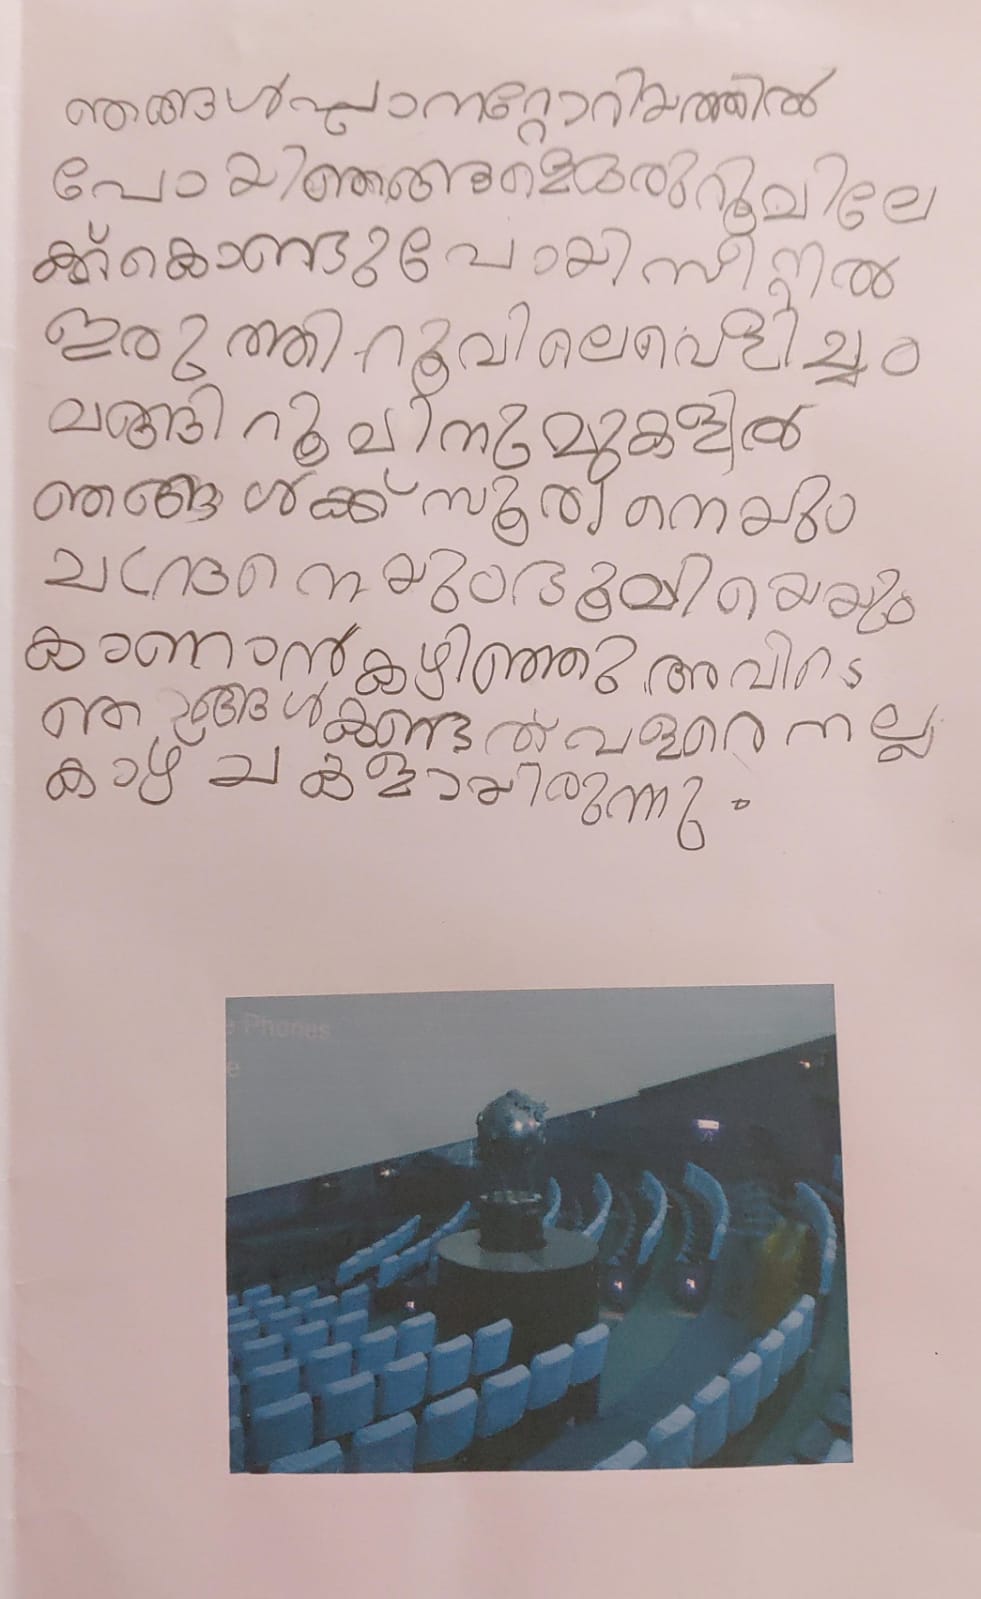 ഞങ്ങൾ പ്ലാനറ്റോറിയത്തിൽ
പോയി ഞങ്ങളെ ഒരു റൂമിലേ
ക്ക് കൊണ്ടുപോയി സീറ്റിൽ
ഇരുത്തി റൂമിലെ വെളിച്ചം
മങ്ങി റൂമിനു മുകളിൽ
ഞങ്ങൾക്ക് സൂര്യനെയും
ചന്ദ്രനെയും ഭൂമിയെയും
കാണാൻ കഴിഞ്ഞു അവിടെ
ഞങ്ങൾ കണ്ടത് വളരെ നല്ല
കാഴ്ചകളായിരുന്നു.
e Phones
e